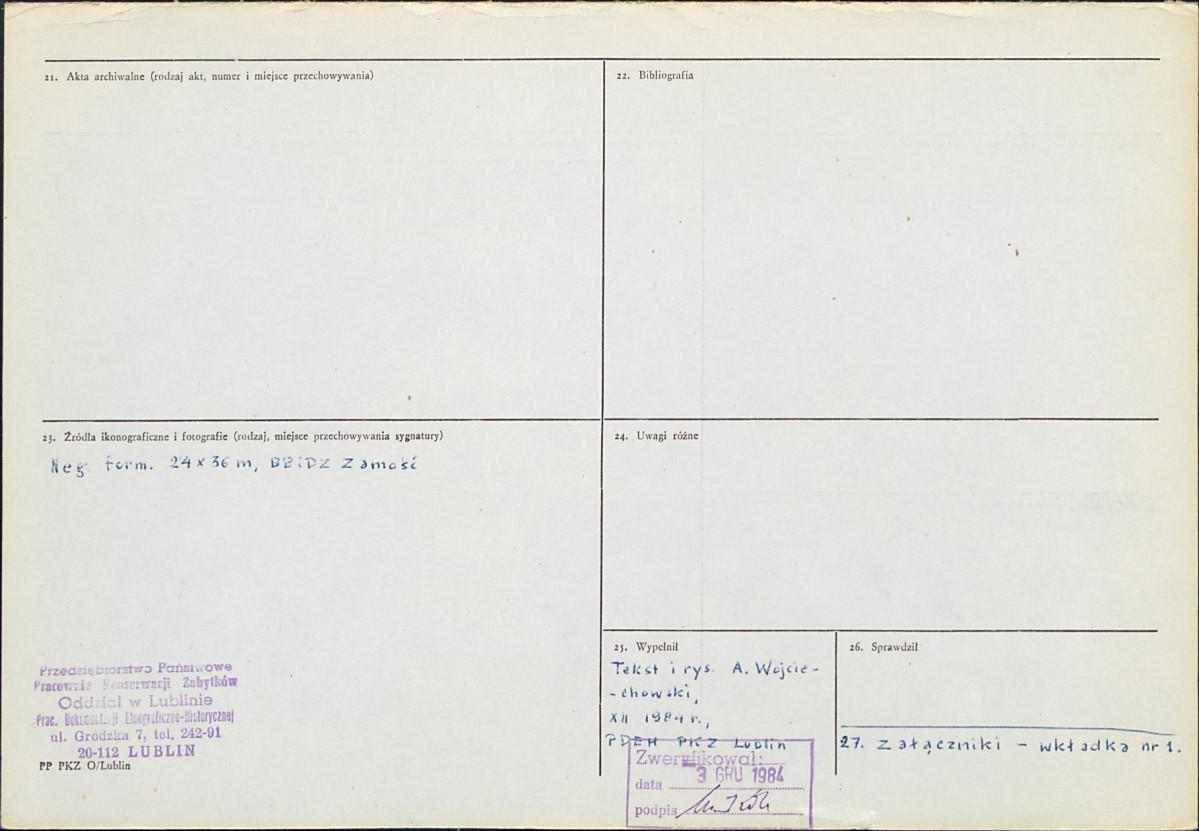 21. Akta archiwalne (rodzaj akt, numer i miejsce przechowywania)
22. Bibliografia
23. Źródła ikonograficzne i fotografie (rodzaj, miejsce przechowywania sygnatury)
Neg. form. 24 x 36 m, BBiDZ Zamość
24. Uwagi różne
25. Wypełnił
Tekst i rys. A. Wojcie-
-chowski,
XII 1984 r.,
PDEH PKZ Lublin
26. Sprawdził
27. Załączniki - wkładka nr 1.
Zweryfikował:
data 3 GRU 1984
podpis
Przedsiębiorstwo Państwowe
Pracownie Konserwacji Zabytków
Oddział w Lublinie
Prac. Dokumentacji Etnograficzno-Historycznej
ul. Grodzka 7, tel. 242-91
20-112 LUBLIN
PP PKZ O/Lublin